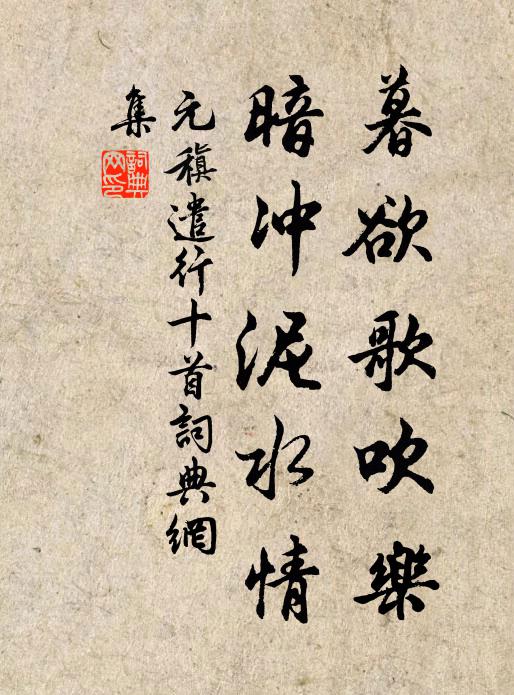 暮欲歌吹樂
暗冲泥水情
元稹遣行十首詞典網
集
詞典
网印